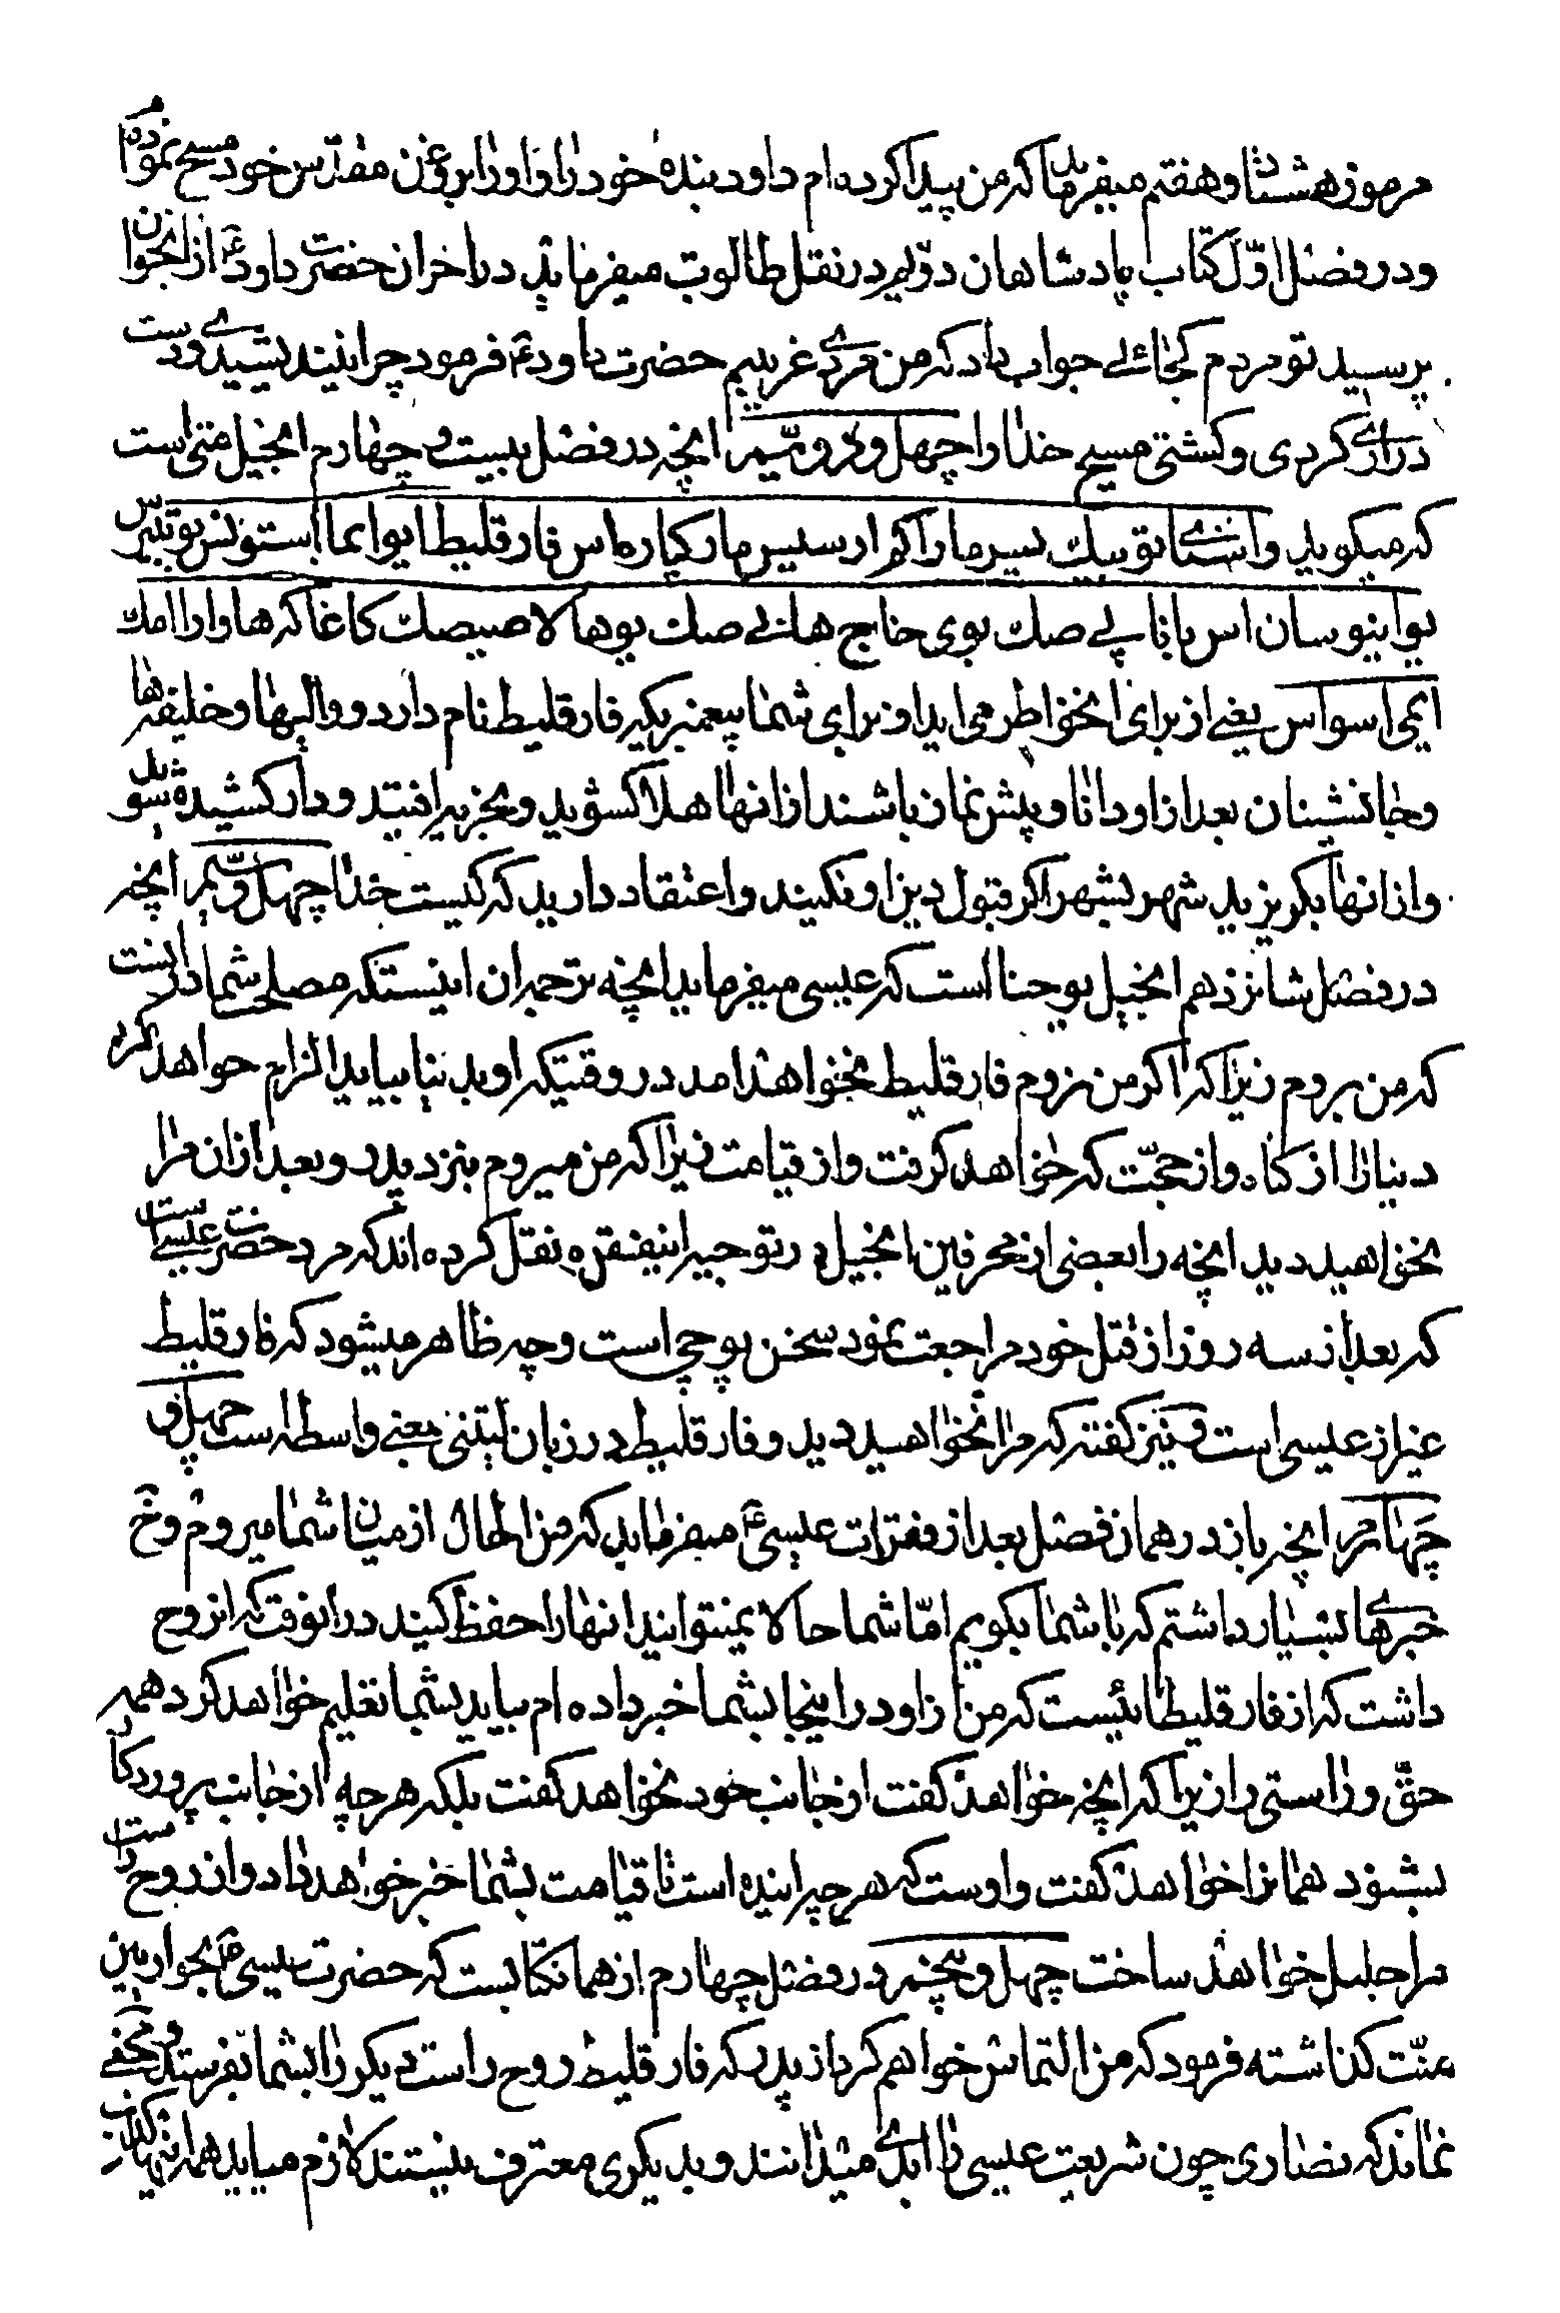 مرموز هشتاد و هفتم میفرماید که من پیدا کرده ام داود بندهٔ خود را و او را بروغن مقدّس خود مسح نموده ام
و در فصل اوّل کتاب پادشاهان دوّیم در نقل طالوت میفرماید در اخر ان حضرت داود ع از انجوان
پرسید تو مردم کجائے جواب داد که من مردی غریبم حضرت داود ع فرمود چرا نترسیدے و دست
درازی کردی و کشتی مسیح خدا را چهل و دویّم انچه در فصل بیست و چهارم انجیل متی است
که میکوید تو بیک بسیر ما را کم ارسیس مارکپاره اس فارقلیطا یوایما ابستولس
یوانیوسان اس بابا پے صك بوی حناجج هانے صك یوها لا صیصك کاغا که هاوارا امك
ایمی اسواس یعنے از برای انخواطر می اید او برای شما پیغمبریکه فارقلیط نام دارد و والیها و خلیفه ها
و جانشینان بعد از او دانا و پیش نماز باشند از انها هلاک شوید و بجزیه افتید و دار کشیده شوید
و از انها بکریزید شهر بشهر اکر قبول دین او نکنید و اعتقاد دارید که کیست خدا چهل و سیّم انچه
در فصل شانزدهم انجیل یوحنا است که عیسی میفرماید انچه ترجمه ان اینستکه مصلحت شما در انست
که من بروم زیرا که اکر من نروم فارقلیط نخواهد امد در وقتیکه او بدنیا بیاید الزام خواهد کرد
دنیا را از کناه و از حجّت که خواهد کرفت و از قیامت زیرا که من میروم بنزد پدر و بعد از ان مرا
نخواهید دید انچه را بعضی از محرفین انجیل در توجیه اینفقره نقل کرده اند که مرد حضرت عیسے است
که بعد از سه روز از قتل خود مراجعت نمود سخن پوچی است و چه ظاهر میشود که فارقلیط
غیر از عیسی است و نیز کفته که مرا نخواهید دید و فارقلیط در زبان لیتنی معنے واسطه است چهل و
چهارم انچه باز در همان فصل بعد از فقرات عیسی ع میفرماید که من الحال از میان شما میروم و
خبرهای بسیار داشتم که با شما بکویم امّا شما حالا نمیتوانید انها را حفظ کنید در انوقت که ان روح
داشت که از فارقلیطائیست که من از او در اینجا بشما خبر داده ام بیاید بشما تعلیم خواهد کرد همه
حقّ و راستی را زیرا که انچه خواهد کفت از جانب خود نخواهد کفت بلکه هر چه از جانب پروردکار
بشنود همانرا خواهد کفت و اوست که هر چه اینده است تا قیامت بشما خبر خواهد داد و ان روح راست
مرا جلیل خواهد ساخت چهل و پنجم در فصل چهارم از همانکتابست که حضرت عیسی ع بحواریین
منّت کذاشته فرمود که من التماس خواهم کرد از پدر که فارقلیط روح راست دیکر را بشما بفرستد و مخفے
نماند که نصاری چون شریعت عیسی را ابدے میدانند و بدیکری معترف نیستند لازم میاید همه